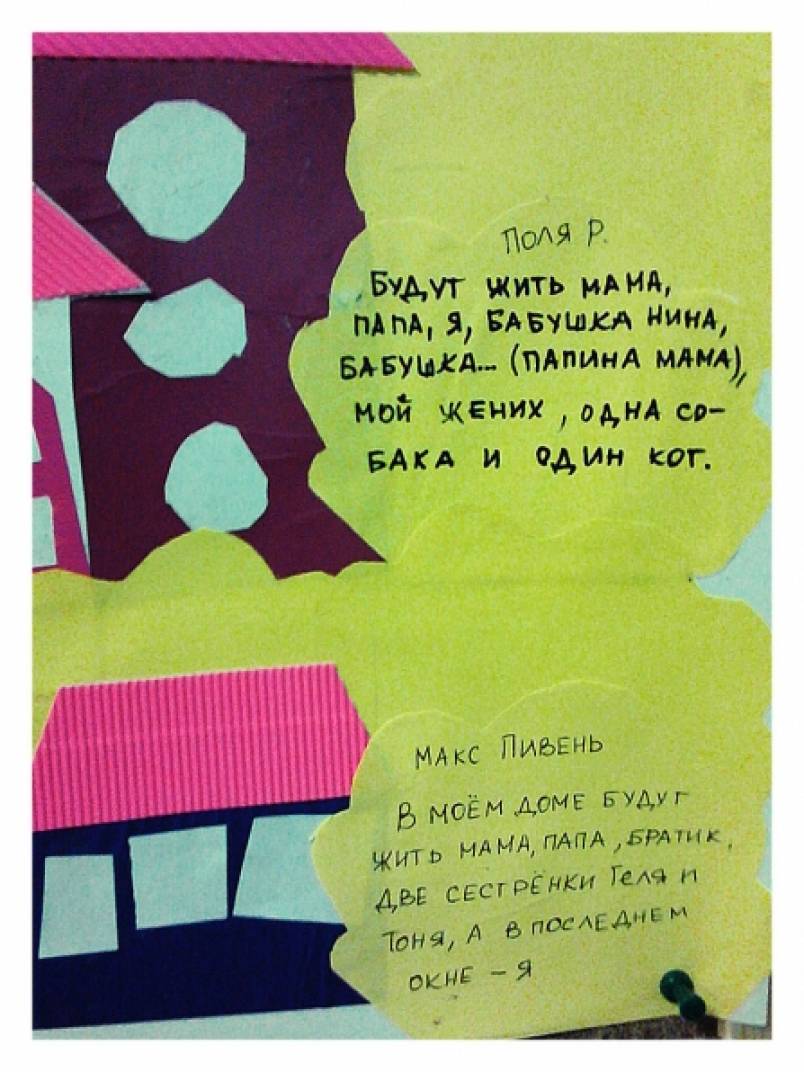 Поля Р.
БУДУТ ЖИТЬ МАМА,
ПАПА, Я, БАБУШКА НИНА,
БАБУШКА... (ПАПИНА МАМА),
МОЙ ЖЕНИХ, ОДНА СО-
БАКА И ОДИН КОТ.
МАКС ПИВЕНЬ
В МОЁМ ДОМЕ БУДУТ
ЖИТЬ МАМА, ПАПА, БРАТИК,
ДВЕ СЕСТРЁНКИ ГЕЛЯ И
ТОНЯ, А В ПОСЛЕДНЕМ
ОКНЕ – Я